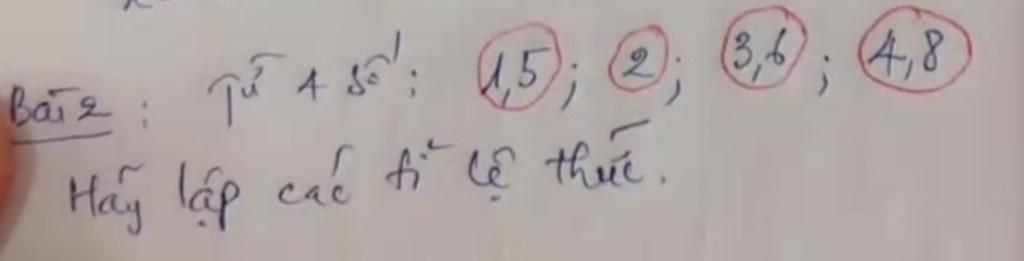 Bài 2 : Từ 4 số : 1,5 ; 2 ; 3,6 ; 4,8
Hãy lập các tỉ lệ thức.